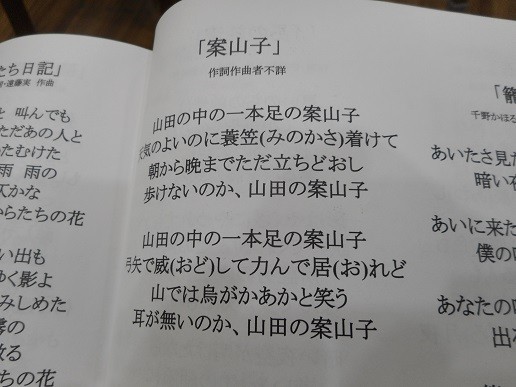 たち日記」
遠藤実 作曲
叫んでも
ただあの人と
たむけた
雨 雨の
仄かな
からたちの花
い出も
ゆく影よ
みしめた
る
ちの花
「案山子」
作詞作曲者不詳
山田の中の一本足の案山子
天気のよいのに蓑笠(みのかさ)着けて
朝から晩までただ立ちどおし
歩けないのか、山田の案山子
山田の中の一本足の案山子
弓矢で威(おど)して力んで居(お)れど
山では烏がかあかと笑う
耳が無いのか、山田の案山子
「籠
千野かほる
あいたさ見た
暗い
あいに来た
僕の
あなたの
出